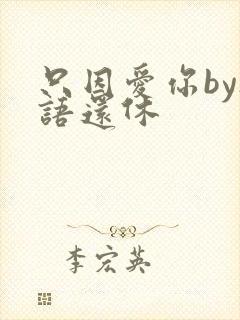 只因愛你by
語還休
李宏英